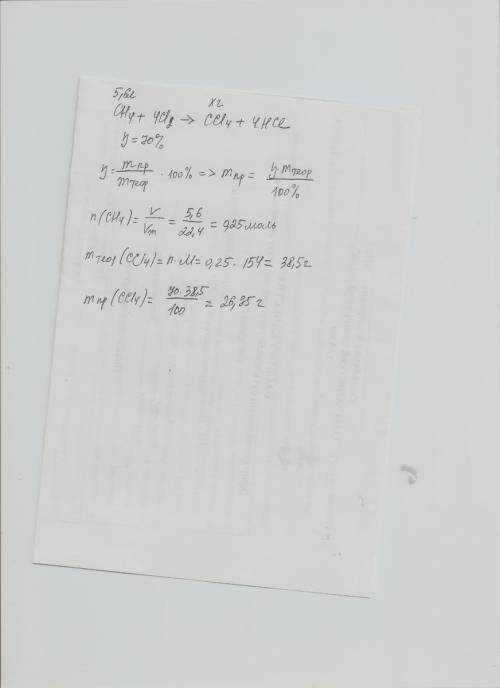 5,6л хг.
CH4 + 4Cl2 → CCl4 + 4HCl
η = 70%
η = mпр/mтеор · 100% => mпр = η·mтеор/100%
n(CH4) = V/Vm = 5,6/22,4 = 0,25 моль
mтеор(CCl4) = n·M = 0,25 · 154 = 38,5 г
mпр(CCl4) = 70·38,5/100 = 26,35 г